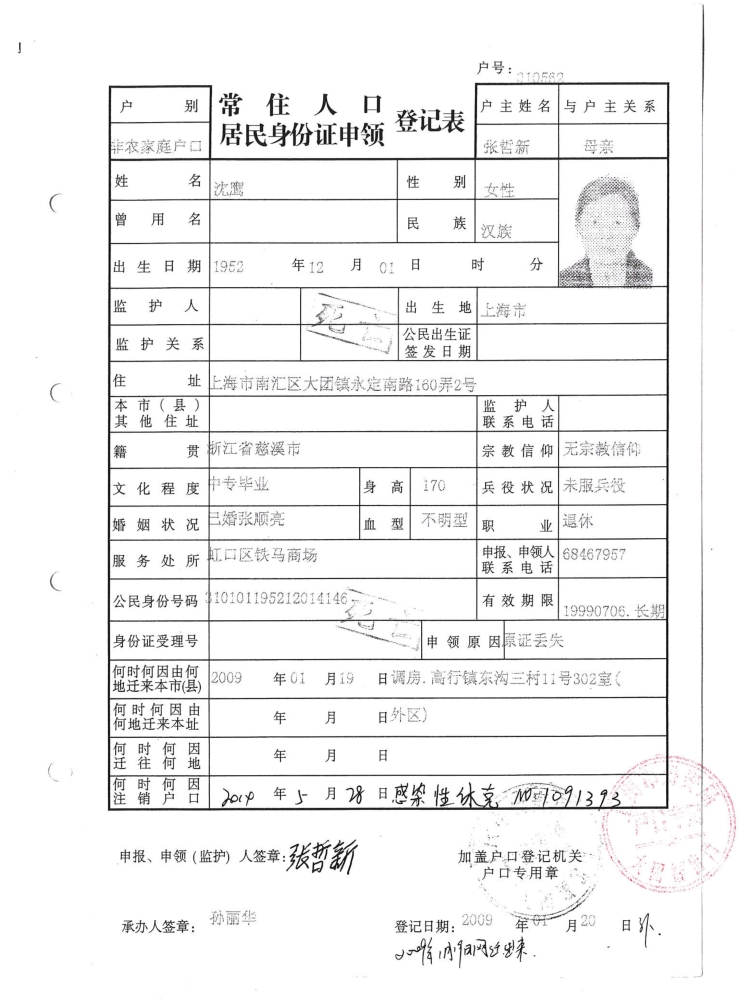 户号：310562
户 别 常住人口 登记表 户主姓名 与户主关系
非农家庭户口 居民身份证申领 张哲新 母亲
姓 名 沈鹰 性 别 女性
曾用名 民 族 汉族
出生日期 1952 年 12 月 01 日 时 分
监护人 死亡 出生地 上海市
监护关系 公民出生证签发日期
住 址 上海市南汇区大团镇永定南路160弄2号
本市(县)其他住址 监护人联系电话
籍 贯 浙江省慈溪市 宗教信仰 无宗教信仰
文化程度 中专毕业 身高 170 兵役状况 未服兵役
婚姻状况 已婚张顺亮 血型 不明型 职 业 退休
服务处所 虹口区铁马商场 申报、申领人联系电话 68467957
公民身份号码 310101195212014146 死亡 有效期限 19990706.长期
身份证受理号 申领原因 原证丢失
何时何因由何地迁来本市(县) 2009 年 01 月 19 日 调房.高行镇东沟三村11号302室(
何时何因由何地迁来本址 年 月 日 外区)
何时何因迁往何地 年 月 日
何时何因注销户口 2014 年 5 月 28 日 感染性休克 No.1091393
申报、申领(监护)人签章：张哲新 加盖户口登记机关
户口专用章
承办人签章： 孙丽华 登记日期：2009 年 01 月 20 日